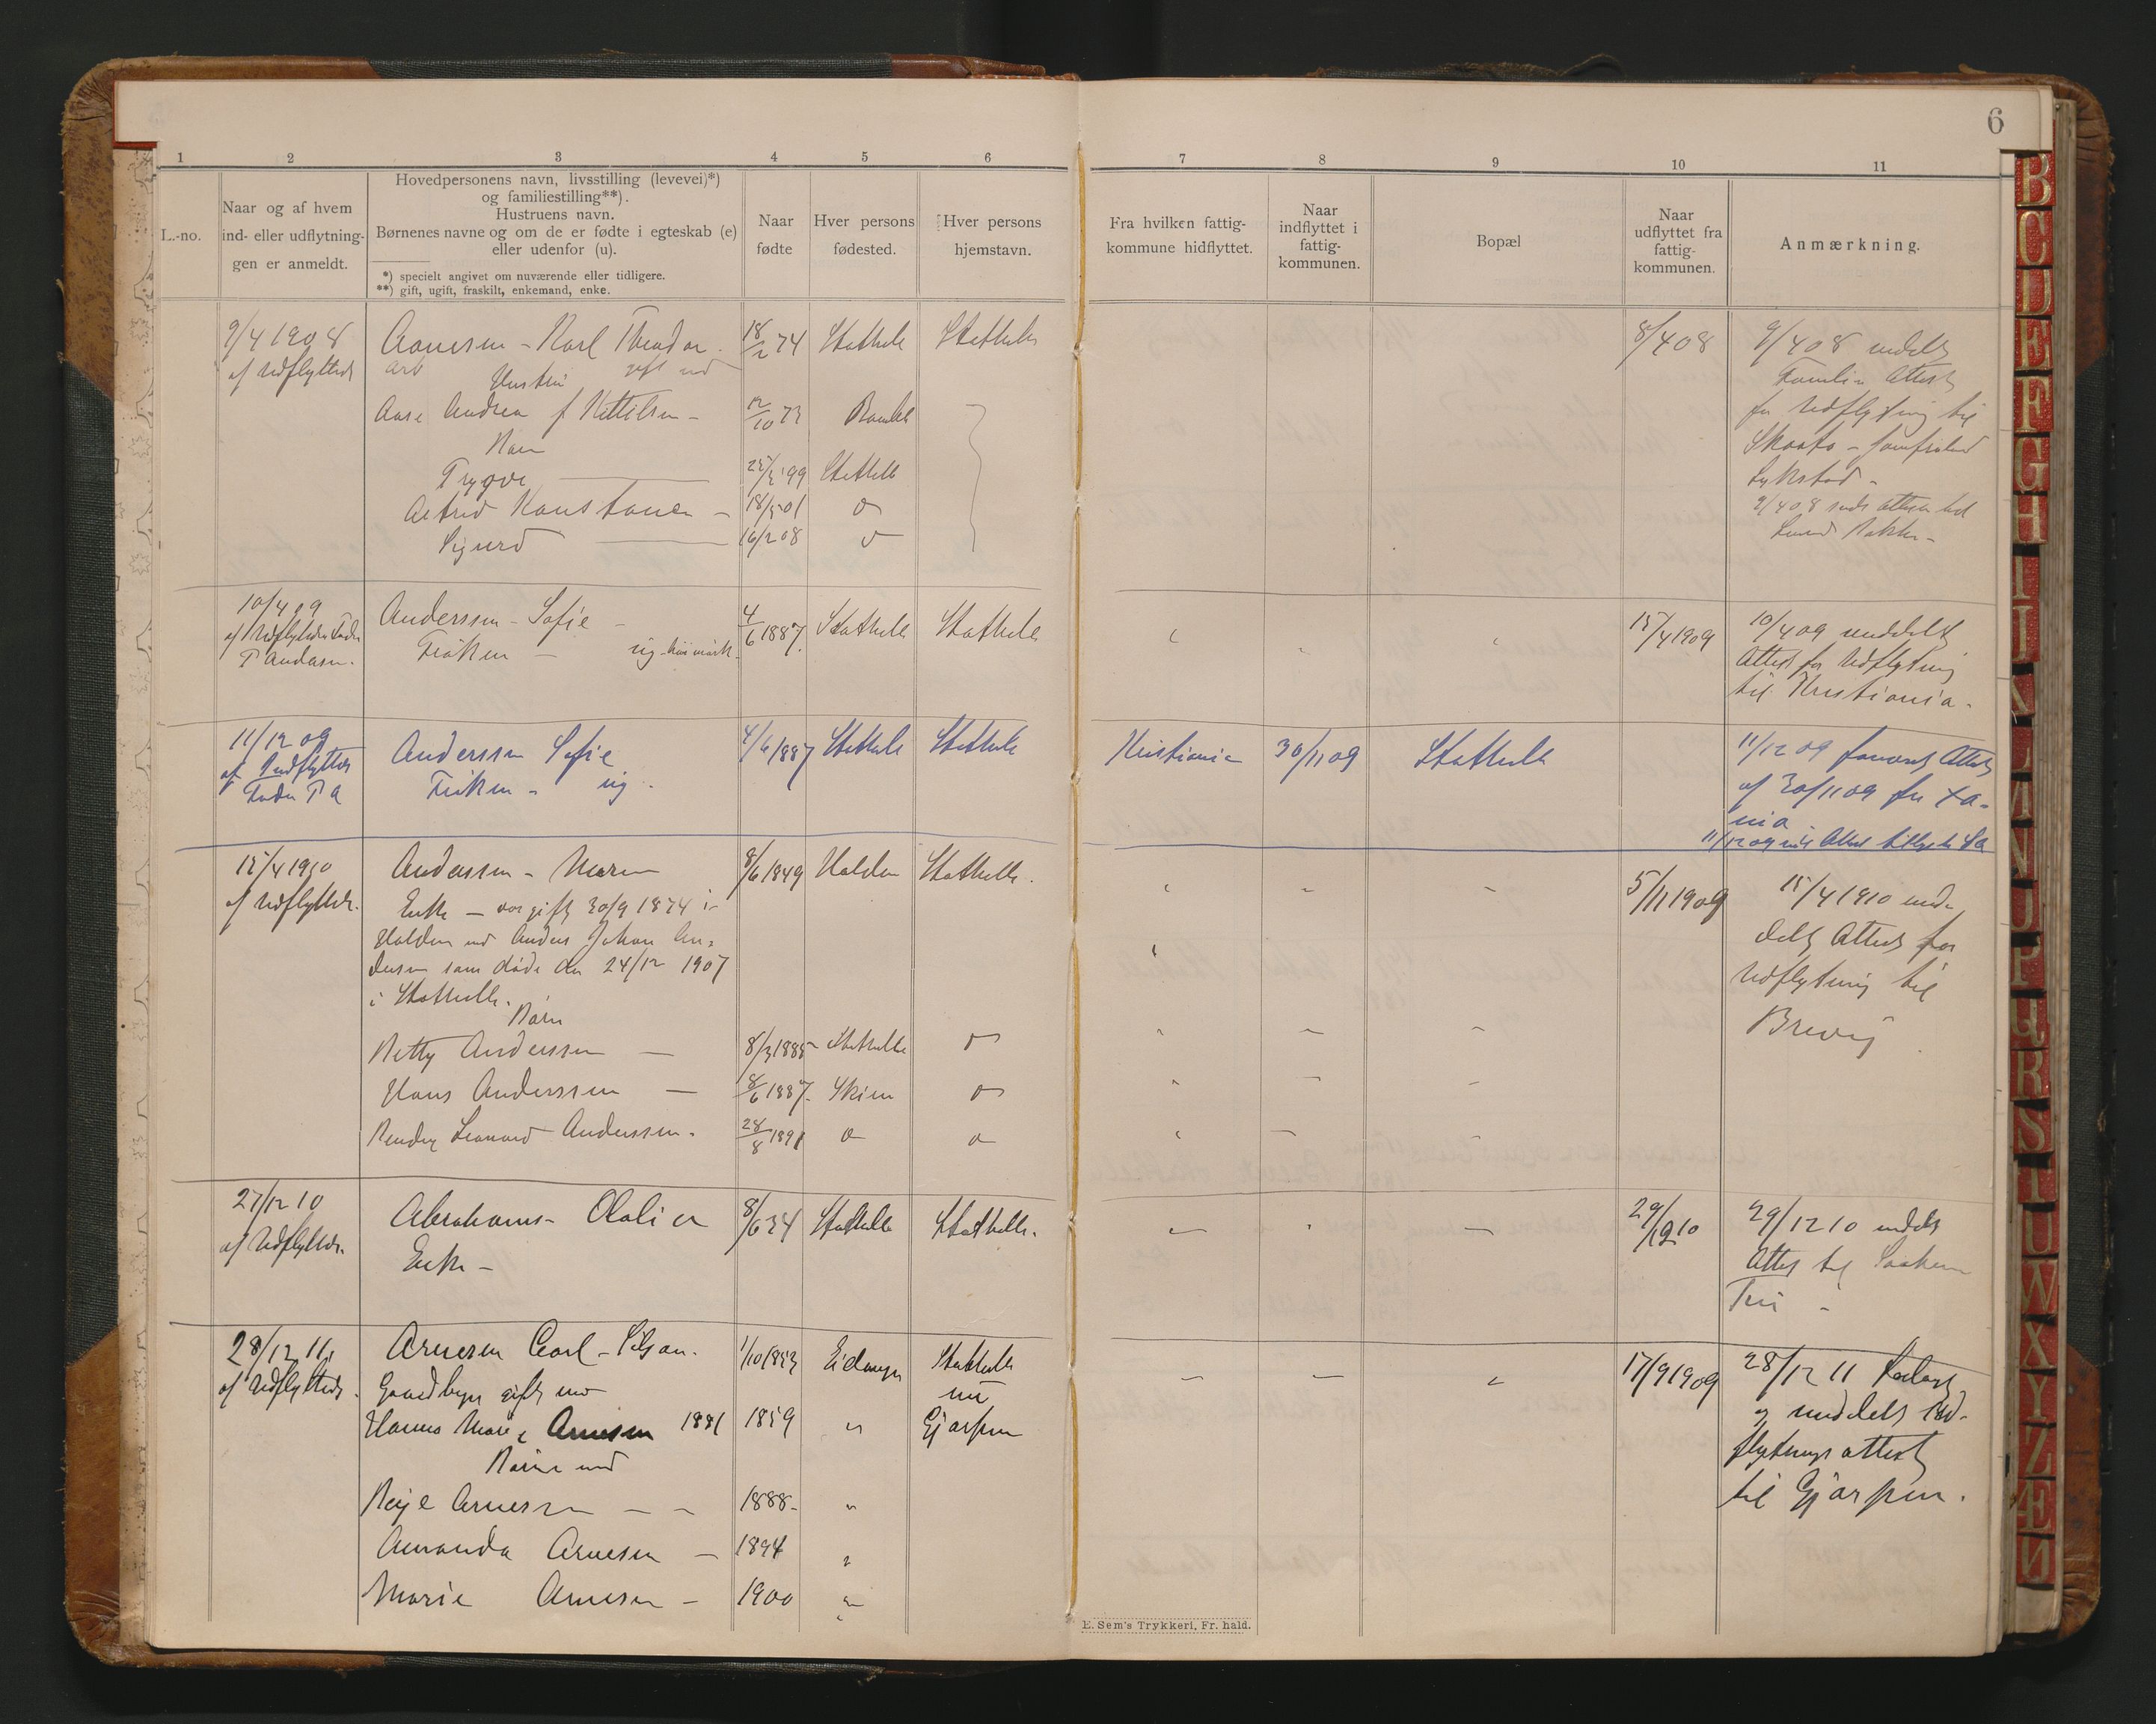 6
1 2 3 4 5 6 7 8 9 10 11
L.-no.
Naar og af hvem
ind- eller udflytnin-
gen er anmeldt.
Hovedpersonens navn, livsstilling (levevei)*)
og familiestilling**).
Hustruens navn.
Børnenes navne og om de er fødte i egteskab (e)
eller udenfor (u).
*) specielt angivet om nuværende eller tidligere.
**) gift, ugift, fraskilt, enkemand, enke.
Naar
fødte
Hver persons
fødested.
Hver persons
hjemstavn.
Fra hvilken fattig-
kommune hidflyttet.
Naar
indflyttet i
fattig-
kommunen.
Bopæl
Naar
udflyttet fra
fattig-
kommunen.
Anmærkning.
9/4 1908 Karl Theodor 18/2 74 Stathelle Stathelle 8/4 08 9/4 08 meddelt
af Udflytteren arb gift med Familie Attest
Hustru
Aase Andrea f. Kittilsen - 12/10 73 Bamble for Udflytning til
Børn Skaatø -
Trygve 99 Stathelle
Astrid Konstance - 18/5 01 9/4 08
Sigurd 16/2 08
10/4 09 Anderssen - Sofie - 4/6 1887. Stathelle Stathelle 15/4 1909 10/4 09 meddelt
af Udflytteren Fader Frøken - ug. Attest for Udflytning
T Andersen. til Kristiania.
11/12 09 Anderssen Sofie 4/6 1887 Stathelle Stathelle Kristiania 30/11 09 Stathelle 11/12 09 Attest
af Indflytter Frøken - ug. af 30/11 09 fra Xa-
Fader T A nia
11/12 09 Attest
15/4 1910 Anderssen - Maren 8/6 1849 Halden Stathelle. 5/11 1909 15/4 1910 med-
af Udflytter. Enke - var gift 30/9 1874 i delt Attest for
Halden med Anders Johan An- Udflytning til
dersen som døde den 24/12 1907 Brevig
i Stathelle.
Børn
Betty Anderssen - Stathelle
Hans Anderssen - 8/6 1887. Skien
Leonard Anderssen. 28/8 1891
27/12 10 Abrahams - Olalia 8/6 34 Stathelle Stathelle. 29/12 10 29/12 10 meddelt
af Udflytter. Enke - Attest til
28/12 11 Arnesen Carl - 1/10 1853 Eidanger Stathelle 17/9 1909 28/12 11
af Udflytteren. Gaardbruger gift med nu og meddelt Ud-
Hanna Marie Arnesen 1881 1859 " Gjerpen flytningsattest
Børn med til Gjerpen.
Arnesen - - 1888 - "
Amanda Arnesen - 1894 "
Marie Arnesen - 1900 "
E. Sem's Trykkeri, Fr. hald.
B
C
D
E
F
G
H
I
J
K
L
M
N
O
P
Q
R
S
T
U
W
X
Y
Z
Æ